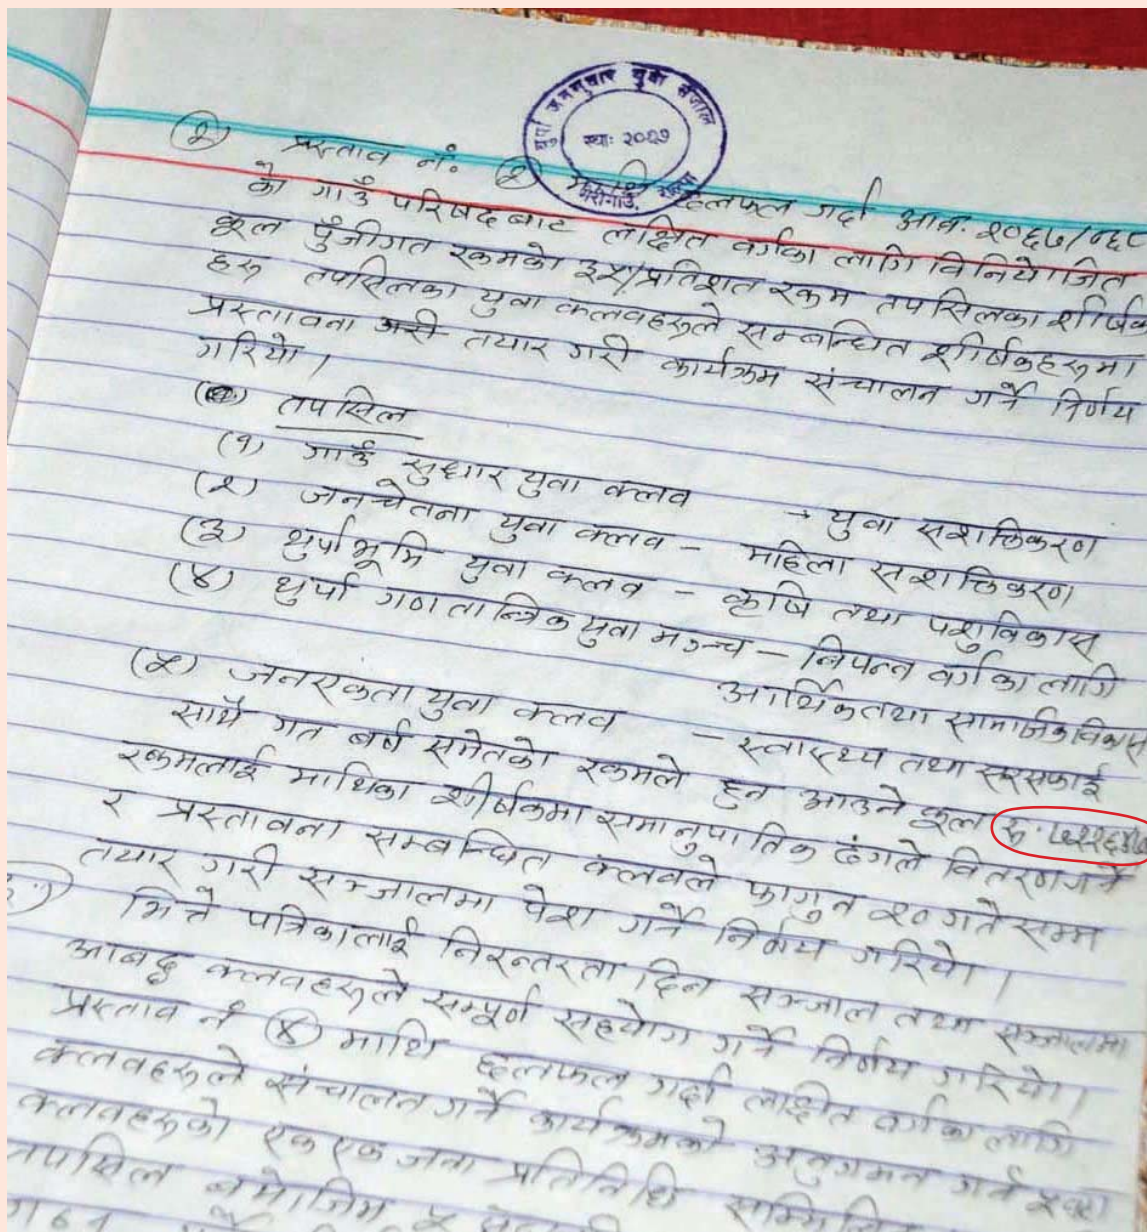 थुर्पा जनमुखि युवा संजाल
स्था: २०६७
मेरीगाउँ, रोल्पा
(२) प्रस्ताव नं. (२) छलफल गर्दा आव: २०६७/०६८
को गाउँ परिषदबाट लक्षित वर्गका लागि विनियोजित
कूल पुँजीगत रकमको ३५% प्रतिशत रकम तपसिलका शीर्षक
हरु तपसिलका युवा क्लवहरुले सम्बन्धित शीर्षकहरुमा
प्रस्तावना तयार गरी कार्यक्रम संन्चालन गर्ने निर्णय
गरियो।
तपसिल
(१) गाउँ सुधार युवा क्लव → युवा सशक्तिकरण
(२) जनचेतना युवा क्लव – महिला सशक्तिकरण
(३) थुर्पाभूमि युवा क्लव – कृषि तथा पशुविकास
(४) थुर्पा गणतान्त्रिक युवा मञ्च – विपन्न वर्गका लागि
आर्थिक तथा सामाजिक विकास
(५) जनएकता युवा क्लव – स्वास्थ्य तथा सरसफाई
साथै गत बर्ष समेतको रकमले हुन आउने कूल
रकमलाई माथिका शीर्षकमा समानुपातिक ढंगले वितरण गर्ने
र प्रस्तावना सम्बन्धित क्लवले फागुन २० गते सम्म
तयार गरी सञ्जालमा पेश गर्ने निर्णय गरियो।
भित्ते पत्रिकालाई निरन्तरता दिन सञ्जाल तथा सञ्जालमा
आबद्ध क्लवहरुले सम्पूर्ण सहयोग गर्ने निर्णय गरियो।
प्रस्ताव नं (४) माथि छलफल गर्दा लक्षित वर्गका लागि
क्लवहरुले संचालन गर्ने कार्यक्रमको अनुगमन गर्न
क्लवहरुको एक एक जना प्रतिनिधि
तपसिल बमोजिम